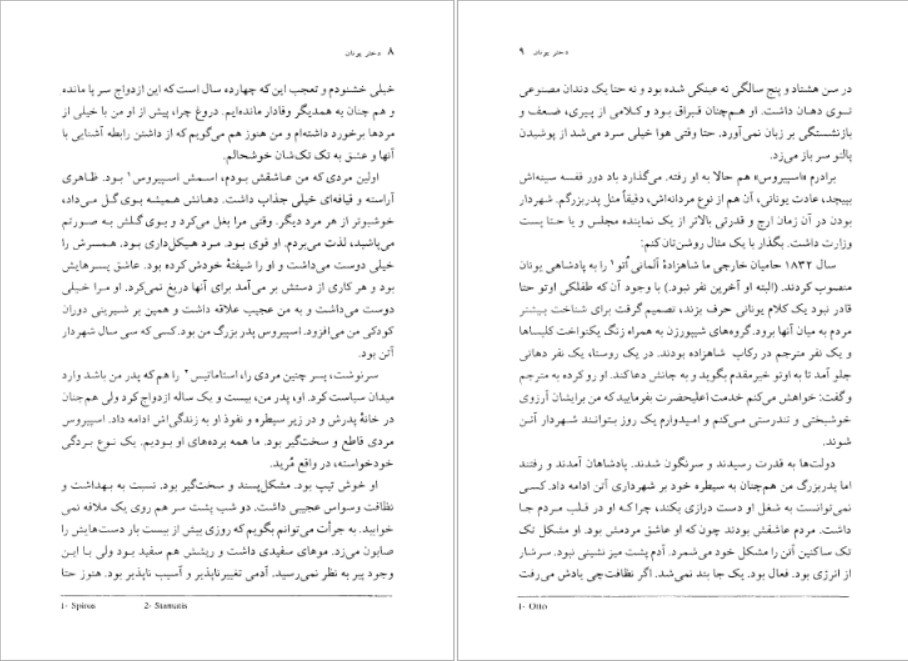 ۸ دختر یونان
خیلی خشنودم و تعجب این‌که چهارده سال است که این ازدواج سر پا مانده
و هم چنان به همدیگر وفادار مانده‌ایم. دروغ چرا، پیش از او من با خیلی از
مردها برخورد داشته‌ام و من هنوز هم می‌گویم که از داشتن رابطه آشنایی با
آنها و عشق به تک تک‌شان خوشحالم.
اولین مردی که من عاشقش بودم، اسمش اسپیروس۱ بود. ظاهری
آراسته و قیافه‌ای خیلی جذاب داشت. دهانش همیشه بوی گل می‌داد،
خوشبوتر از هر مرد دیگر. وقتی مرا بغل می‌کرد و بوی گلش به صورتم
می‌پاشید، لذت می‌بردم. او قوی بود. مرد هیکل‌داری بود. همسرش را
خیلی دوست می‌داشت و او را شیفتهٔ خودش کرده بود. عاشق پسرهایش
بود و هر کاری از دستش بر می‌آمد برای آنها دریغ نمی‌کرد. او مرا خیلی
دوست می‌داشت و به من عجیب علاقه داشت و همین بر شیرینی دوران
کودکی من می‌افزود. اسپیروس پدر بزرگ من بود. کسی که سی سال شهردار
آتن بود.
سرنوشت، پسر چنین مردی را، استاماتیس۲ را هم که پدر من باشد وارد
میدان سیاست کرد. او، پدر من، بیست و یک ساله ازدواج کرد ولی هم‌چنان
در خانهٔ پدرش و در زیر سیطره و نفوذ او به زندگی‌اش ادامه داد. اسپیروس
مردی قاطع و سخت‌گیر بود. ما همه برده‌های او بودیم. یک نوع بردگی
خودخواسته، در واقع مُرید.
او خوش تیپ بود. مشکل‌پسند و سخت‌گیر بود. نسبت به بهداشت و
نظافت وسواس عجیبی داشت. دو شب پشت سر هم روی یک ملافه نمی
خوابید. به جرأت می‌توانم بگویم که روزی بیش از بیست بار دست‌هایش را
صابون می‌زد. موهای سفیدی داشت و ریشش هم سفید بود ولی با این
وجود پیر به نظر نمی‌رسید. آدمی تغییرناپذیر و آسیب ناپذیر بود. هنوز حتا
1- Spiros 2- Stamatis
دختر یونان ۹
در سن هشتاد و پنج سالگی نه عینکی شده بود و نه حتا یک دندان مصنوعی
توی دهان داشت. او هم‌چنان قبراق بود و کلامی از پیری، ضعف و
بازنشستگی بر زبان نمی‌آورد. حتا وقتی هوا خیلی سرد می‌شد از پوشیدن
پالتو سر باز می‌زد.
برادرم «اسپیروس» هم حالا به او رفته. می‌گذارد باد دور قفسه سینه‌اش
بپیچد، عادت یونانی، آن هم از نوع مردانه‌اش، دقیقاً مثل پدربزرگم. شهردار
بودن در آن زمان ارج و قدرتی بالاتر از یک نماینده مجلس و یا حتا پست
وزارت داشت. بگذار با یک مثال روشن‌تان کنم:
سال ۱۸۳۲ حامیان خارجی ما شاهزادهٔ آلمانی اُتو۱ را به پادشاهی یونان
منصوب کردند. (البته او آخرین نفر نبود.) با وجود آن که طفلکی اوتو حتا
قادر نبود یک کلام یونانی حرف بزند، تصمیم گرفت برای شناخت بیشتر
مردم به میان آنها برود. گروه‌های شیپورزن به همراه زنگ یکنواخت کلیساها
و یک نفر مترجم در رکاب شاهزاده بودند. در یک روستا، یک نفر دهاتی
جلو آمد تا به اوتو خیرمقدم بگوید و به جانش دعا کند. او رو کرده به مترجم
و گفت: خواهش می‌کنم خدمت اعلیحضرت بفرمایید که من برایشان آرزوی
خوشبختی و تندرستی می‌کنم و امیدوارم یک روز بتوانند شهردار آتن
شوند.
دولت‌ها به قدرت رسیدند و سرنگون شدند. پادشاهان آمدند و رفتند
اما پدربزرگ من هم‌چنان به سیطره خود بر شهرداری آتن ادامه داد. کسی
نمی‌توانست به شغل او دست درازی بکند، چرا که او در قلب مردم جا
داشت. مردم عاشقش بودند چون که او عاشق مردمش بود. او مشکل تک
تک ساکنین آتن را مشکل خود می‌شمرد. آدم پشت میز نشینی نبود. سرشار
از انرژی بود. فعال بود. یک جا بند نمی‌شد. اگر نظافت‌چی یادش می‌رفت
1- Otto